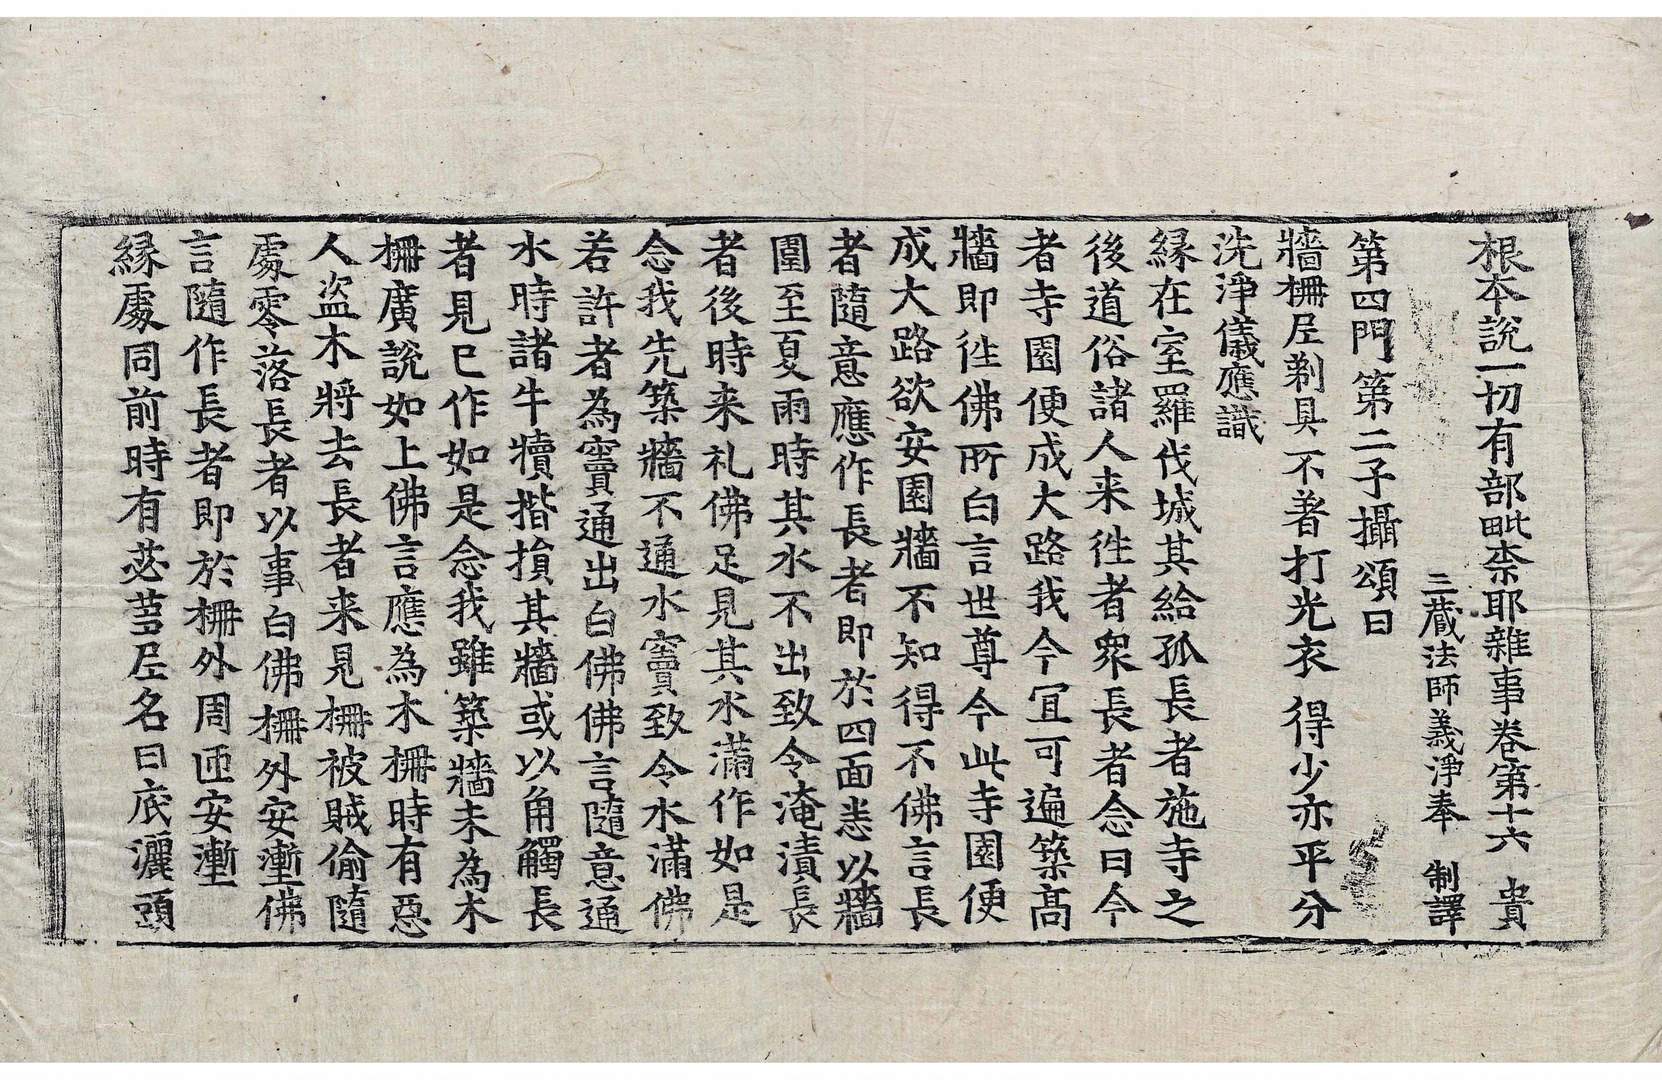 根本說一切有部毗柰耶雜事卷第十六　貴
三藏法師義淨奉　制譯
第四門第二子攝頌曰
牆柵尼剃具不著打光衣　得少亦平分
洗淨儀應識
縁在室羅伐城其給孤長者施寺之
後道俗諸人来徃者衆長者念曰今
者寺園便成大路我今冝可遍築高
牆即徃佛所白言世尊今此寺園便
成大路欲安園牆不知得不佛言長
者隨意應作長者即於四面悉以牆
圍至夏雨時其水不出致令淹漬長
者後時来礼佛足見其水滿作如是
念我先築牆不通水竇致令水滿佛
若許者為竇通出白佛佛言隨意通
水時諸牛犢揩損其牆或以角觸長
者見已作如是念我雖築牆未為木
柵廣說如上佛言應為木柵時有惡
人盗木將去長者来見柵被賊偷隨
處零落長者以事白佛柵外安壍佛
言隨作長者即於柵外周匝安壍
縁處同前時有苾芻尼名曰底灑頭